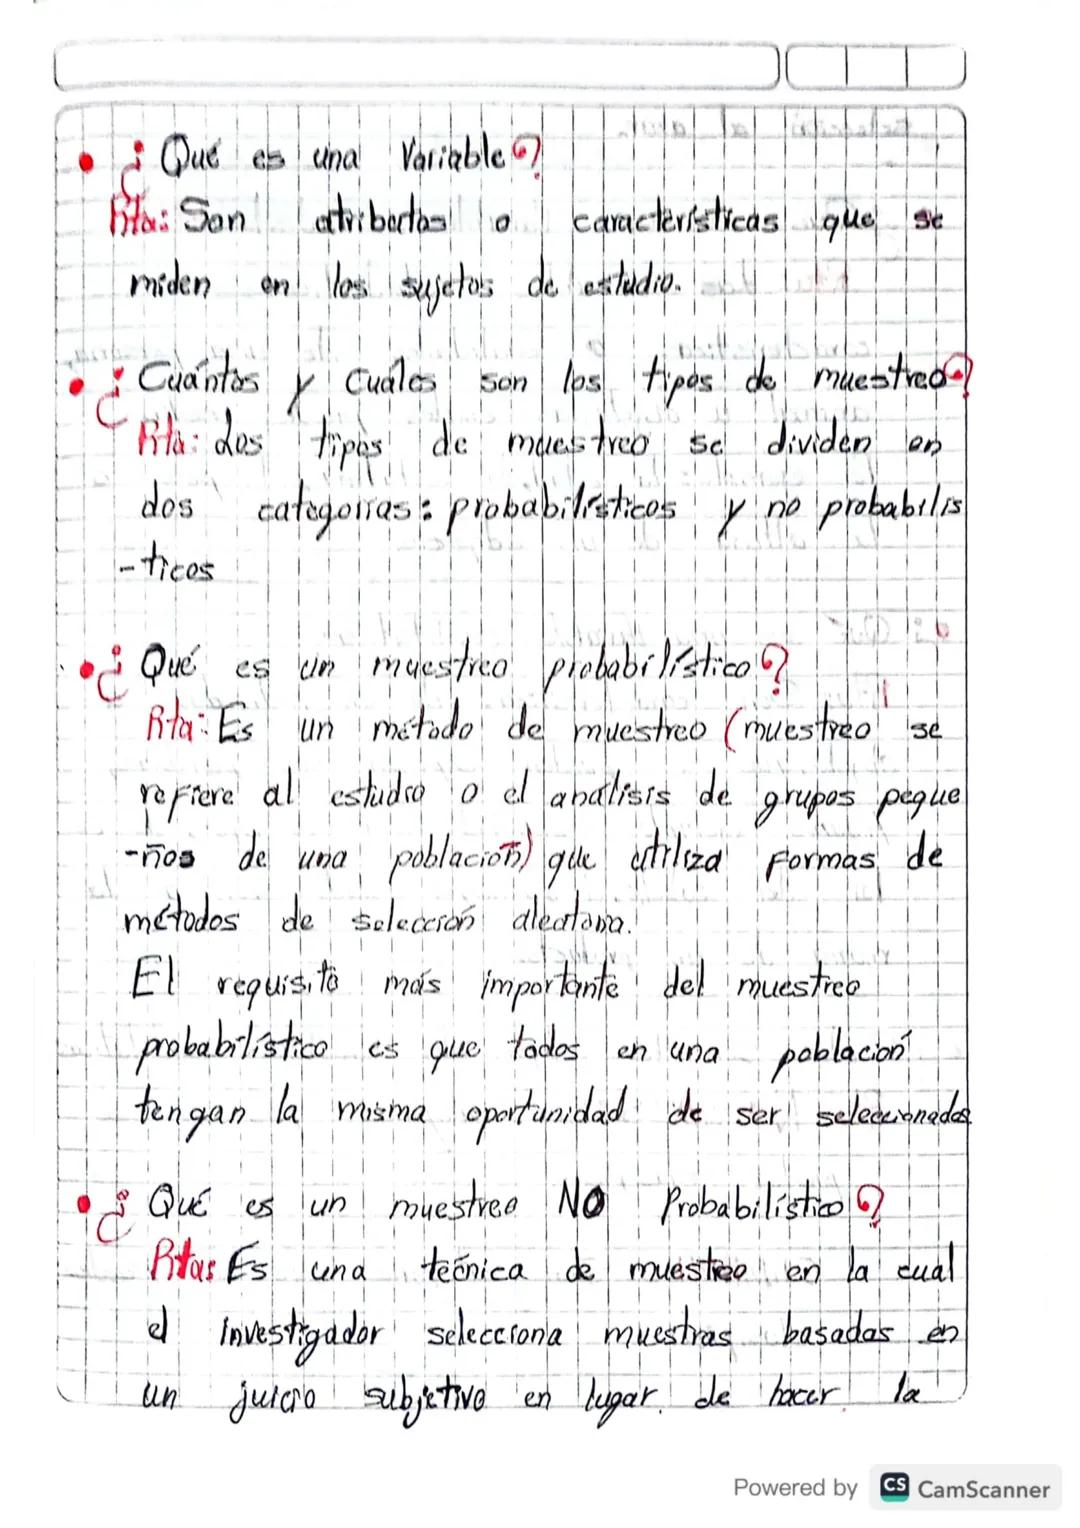 • ¿Qué es una Variable?
Rta: Son atributos o características que se
miden en los sujetos de estudio.
• ¿Cuántos y Cuáles son los tipos de muestreo?
Rta: Los tipos de muestreo se dividen en
dos categorías: probabilísticos y no probabilís
-ticos
• ¿Qué es un muestreo probabilístico?
Rta: Es un método de muestreo (muestreo se
refiere al estudio o el análisis de grupos peque
-ños de una población) que utiliza formas de
métodos de selección aleatoria.
El requisito más importante del muestreo
probabilístico es que todos en una población
tengan la misma oportunidad de ser seleccionados
• ¿Qué es un muestreo NO Probabilístico?
Rta: Es una técnica de muestreo en la cual
el investigador selecciona muestras basadas en
un juicio subjetivo en lugar de hacer la
Powered by CS CamScanner